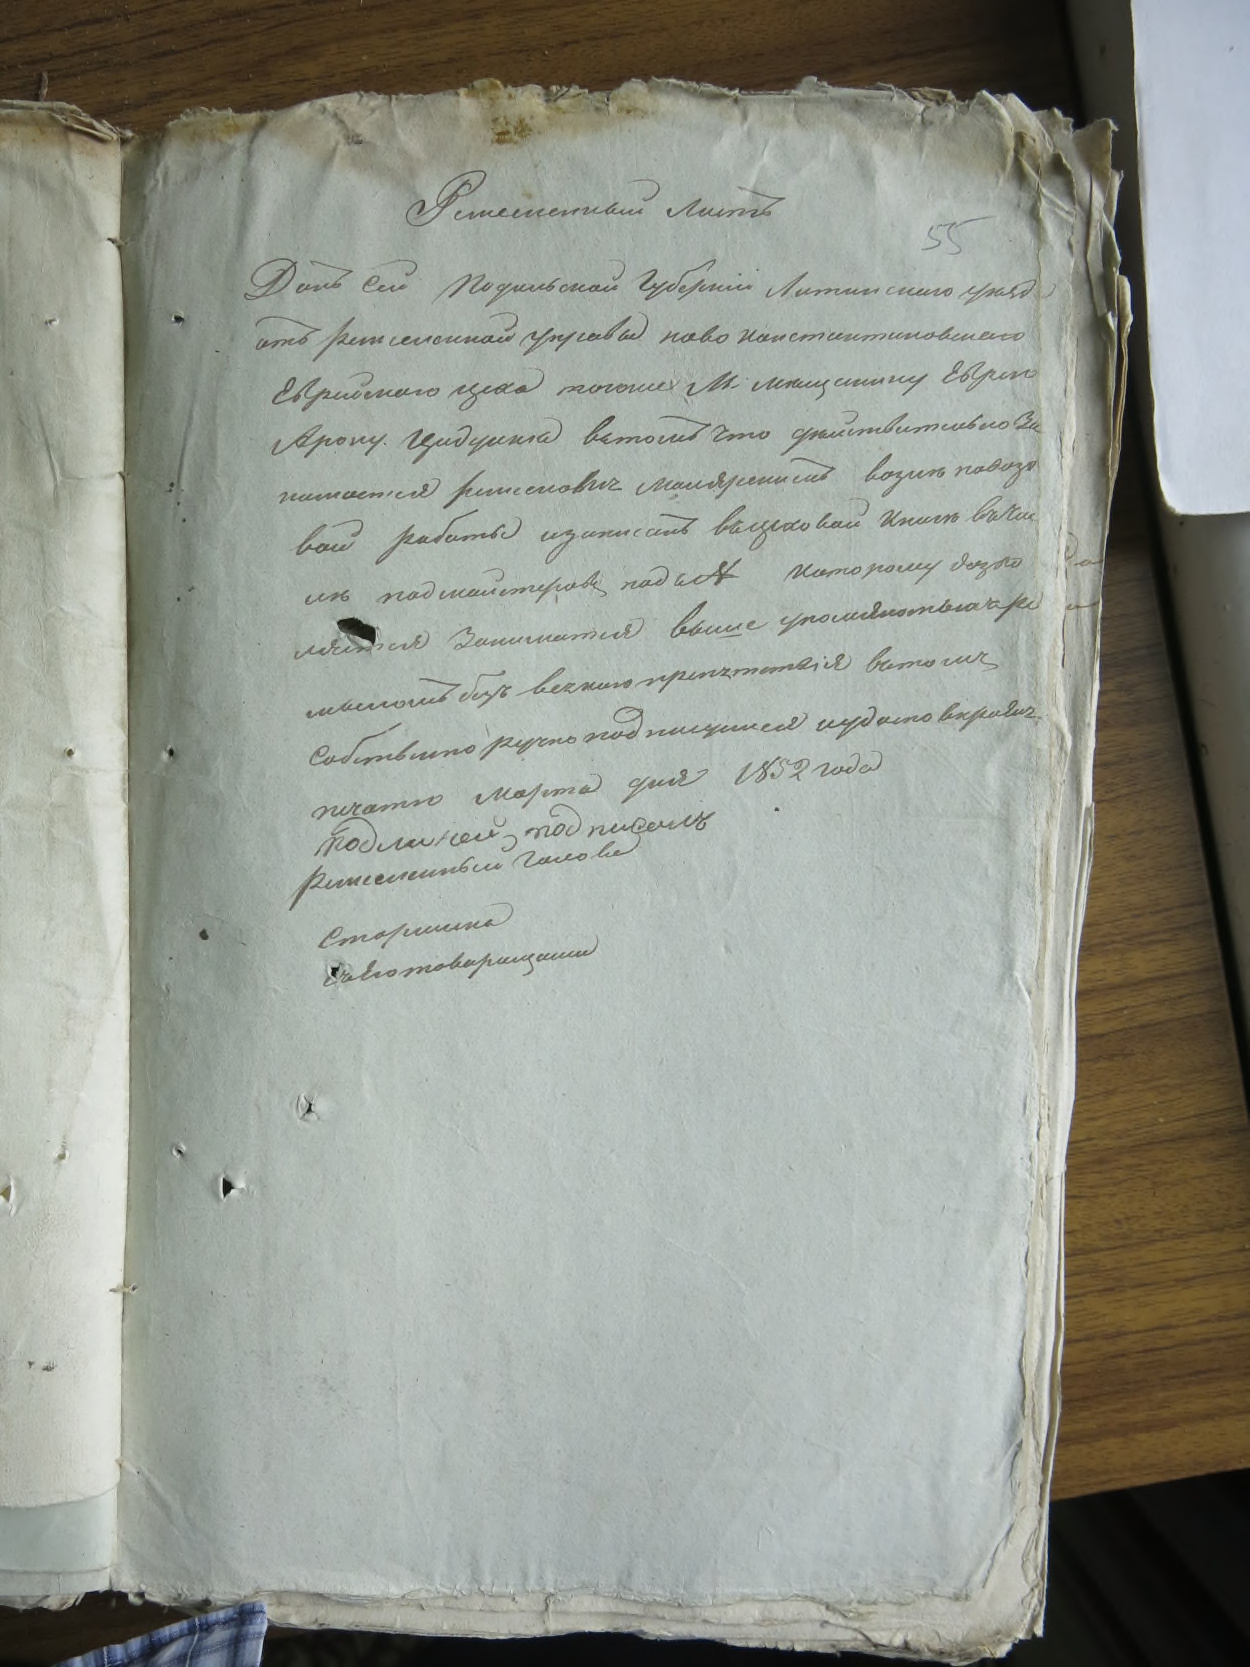 Ремесленный Листъ
55
Данъ сей Подольской Губернїи Литинскаго уезда
отъ ремесленной управы ново константиновскаго
Еврейскаго цеха тогоже М: мещанину Еврею
Арону вътомъ что действительно За
нимается ремесломъ
вой работы изаписанъ въцеховой книге вчис
ле подмайстеровъ подъ № которому дозво
ляется Заниматся выше упомянотымъ ре
месломъ безъ всякаго препятствїя вътомъ
собственно ручно подписуемся иудостоверяемъ
печатю Марта дня 1852 года
Подлиной подписалъ
Ремесленный Голова
Старшина
съего товарищами